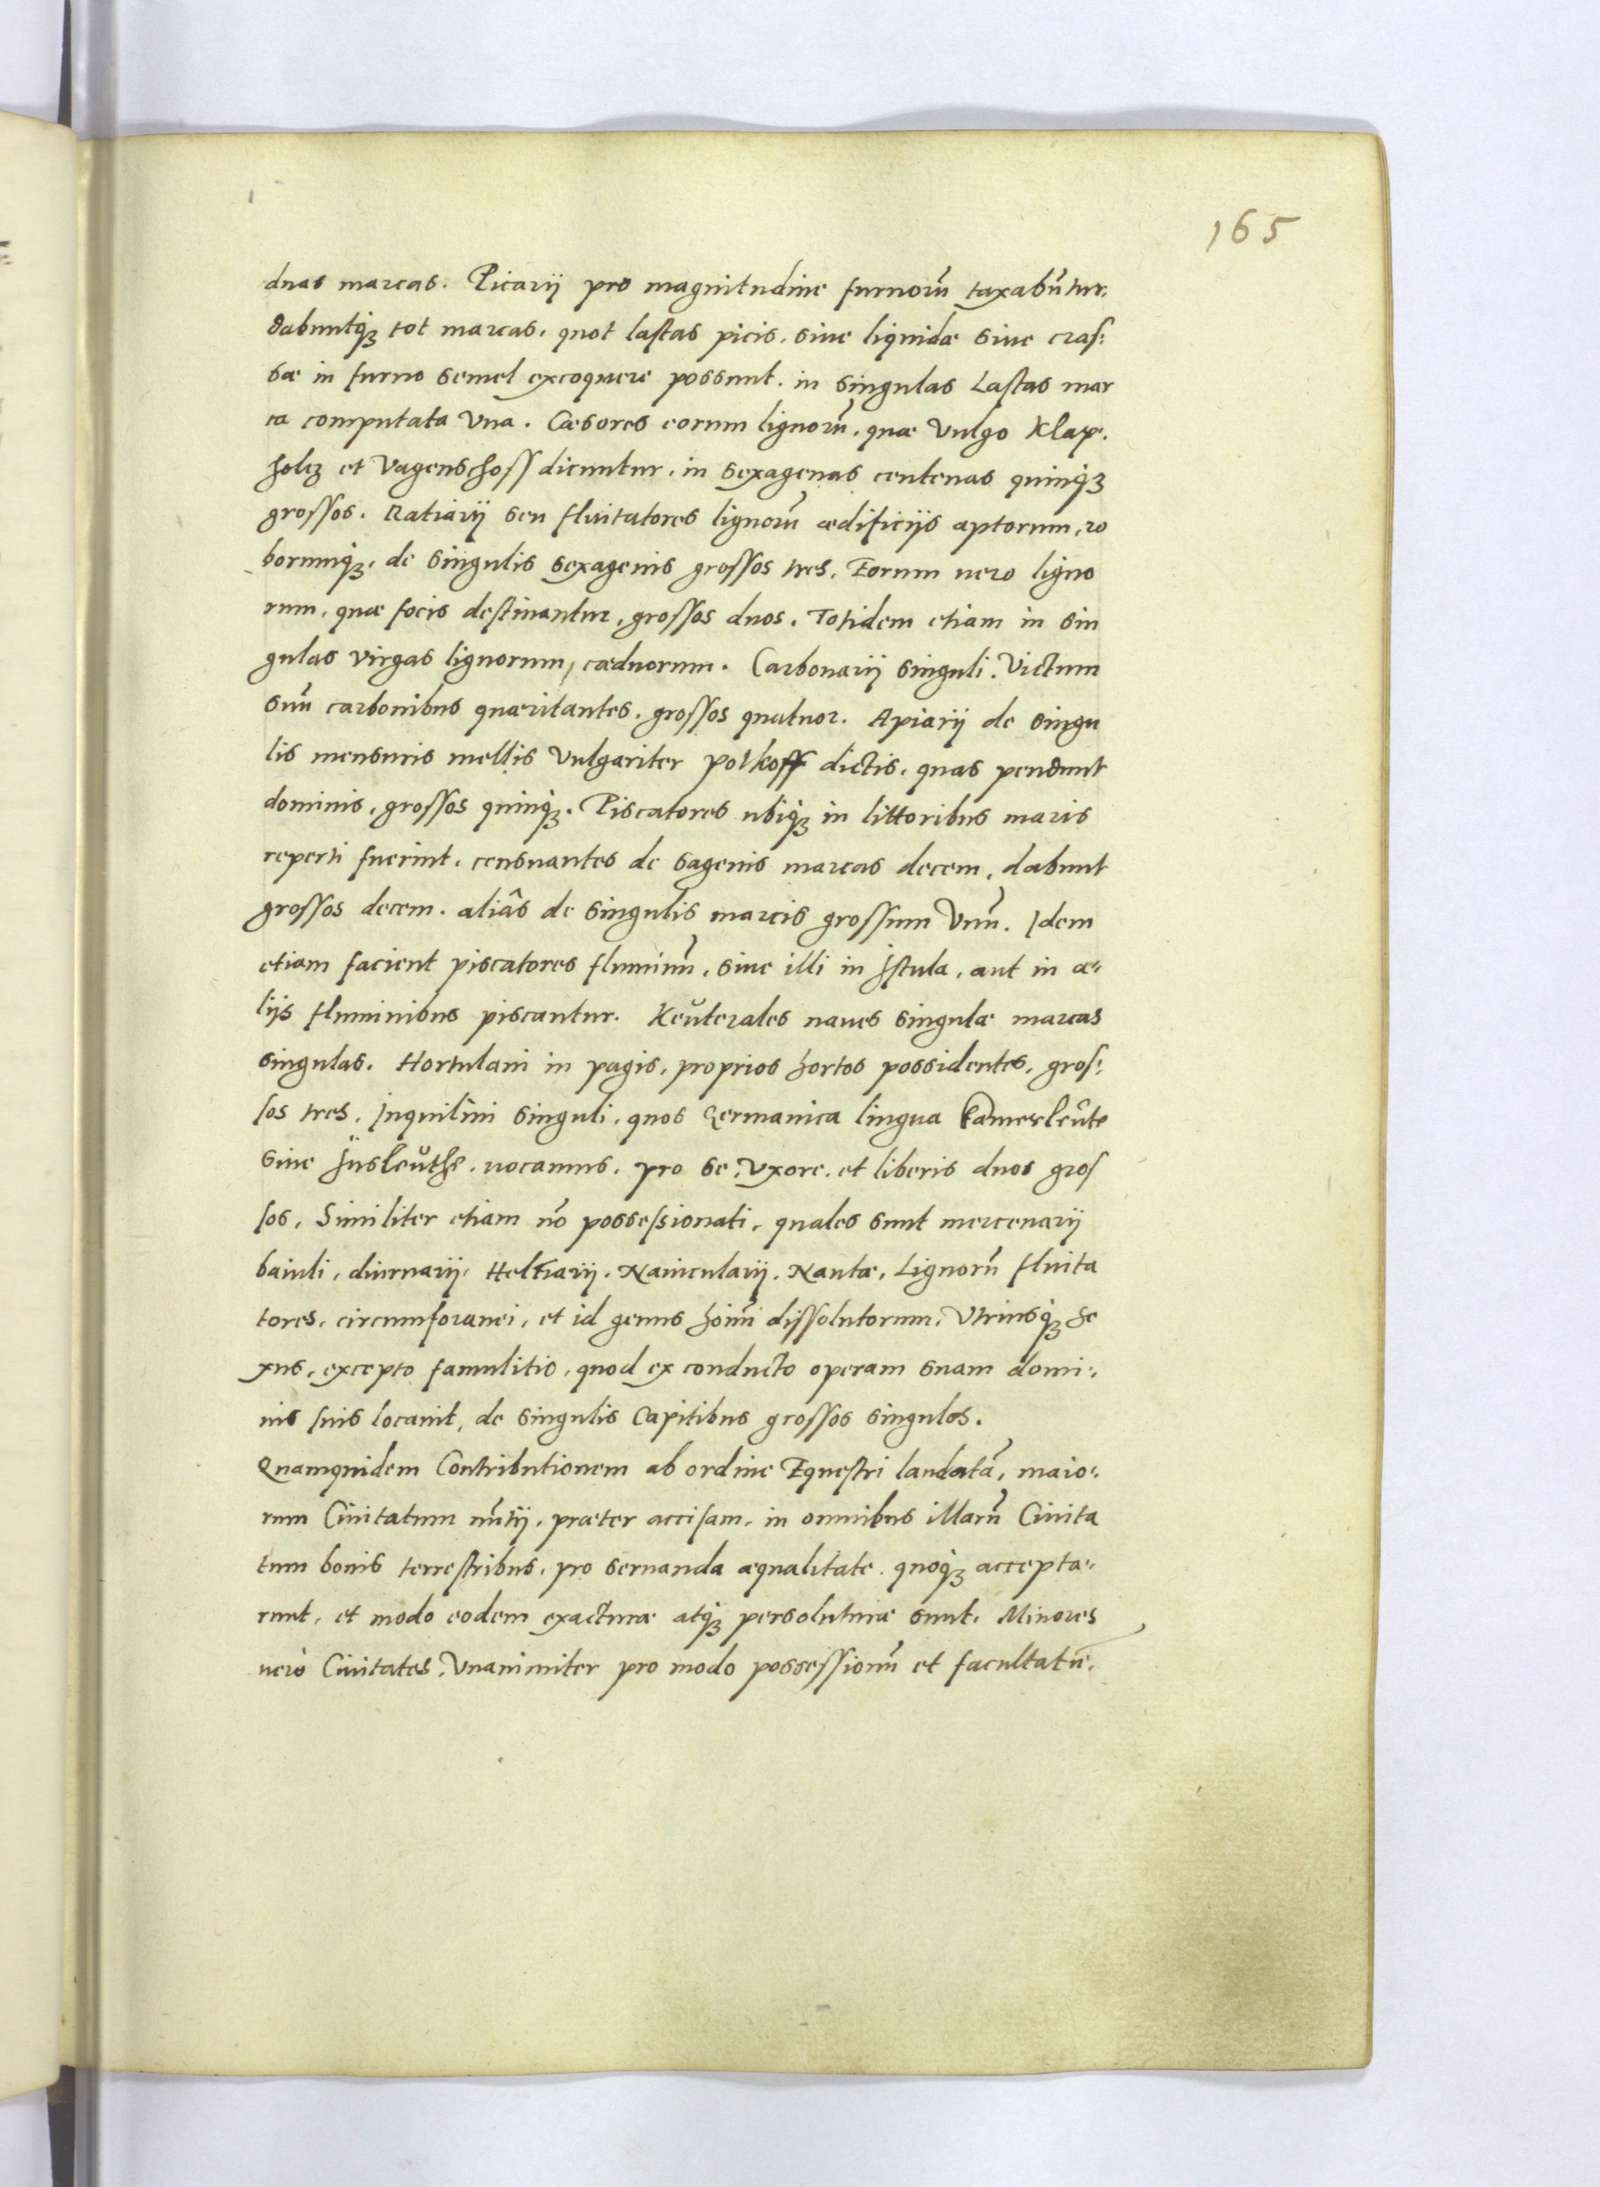 165
duas marcas. Picarij pro magnitudine furnorũ taxabũtur,
dabuntq́ꝫ tot marcas, quot lastas picis, siue liquidæ siue cras:
sæ in furno semel excoquere possunt, in singulas Lastas mar
ca computata Vna. Cæsores eorum lignorũ, quæ Vulgo Klap.
holcz et Vagenschoss dicuntur, in sexagenas centenas quinq́ꝫ
grossos. Ratiarij seu fluitatores lignorũ ædificijs aptorum, ro
borumq́ꝫ, de singulis sexagenis grossos tres, Eorum uero ligno
rum, quæ focis destinantur, grossos duos. Totidem etiam in sin
gulas Virgas lignorum, cæduorum. Carbonarij singuli, Victum
suũ carbonibus quæritantes, grossos quatuor. Apiarij de singu
lis mensuris mellis Vulgariter polkoff dictis, quas pendunt
dominis, grossos quinq́ꝫ. Piscatores ubiq́ꝫ in littoribus maris
reperti fuerint, censuantes de sagenis marcas decem, dabunt
grossos decem, aliâs de singulis marcis grossum Vnũ. Idem
etiam facient piscatores fluminũ, siue illi in Istula, aut in a-
lijs fluminibus piscantur. Keŭterales naues singulæ marcas
singulas. Hortulani in pagis, proprios hortos possidentes, gros:
sos tres. Inquilini singuli, quos Germanica lingua Kamerleŭte
siue Jnsleŭthe, uocamus, pro se, Vxore, et liberis duos gros
sos, Similiter etiam nõ possessionati, quales sunt mercenarij
baiuli, diurnarij, Heltiarij, Nauicularij, Nautæ, Lignorũ fluita
tores, circumforanei, et id genus hoĩm dissolutorum, Vtriusq́ꝫ se
xus, excepto famulitio, quod ex conducto operam suam domi:
nis suis locauit, de singulis Capitibus grossos singulos.
Quamquidem Contributionem ab ordine Equestri laudatã, maio:
rum Ciuitatum nũtij, præter accisam, in omnibus illarũ Ciuita
tum bonis terrestribus, pro seruanda æqualitate, quoq́ꝫ accepta-
runt, et modo eodem exacturæ atq́ꝫ persoluturæ sunt, Minores
uerò Ciuitates, Vnanimiter pro modo possessionũ et facultatũ,